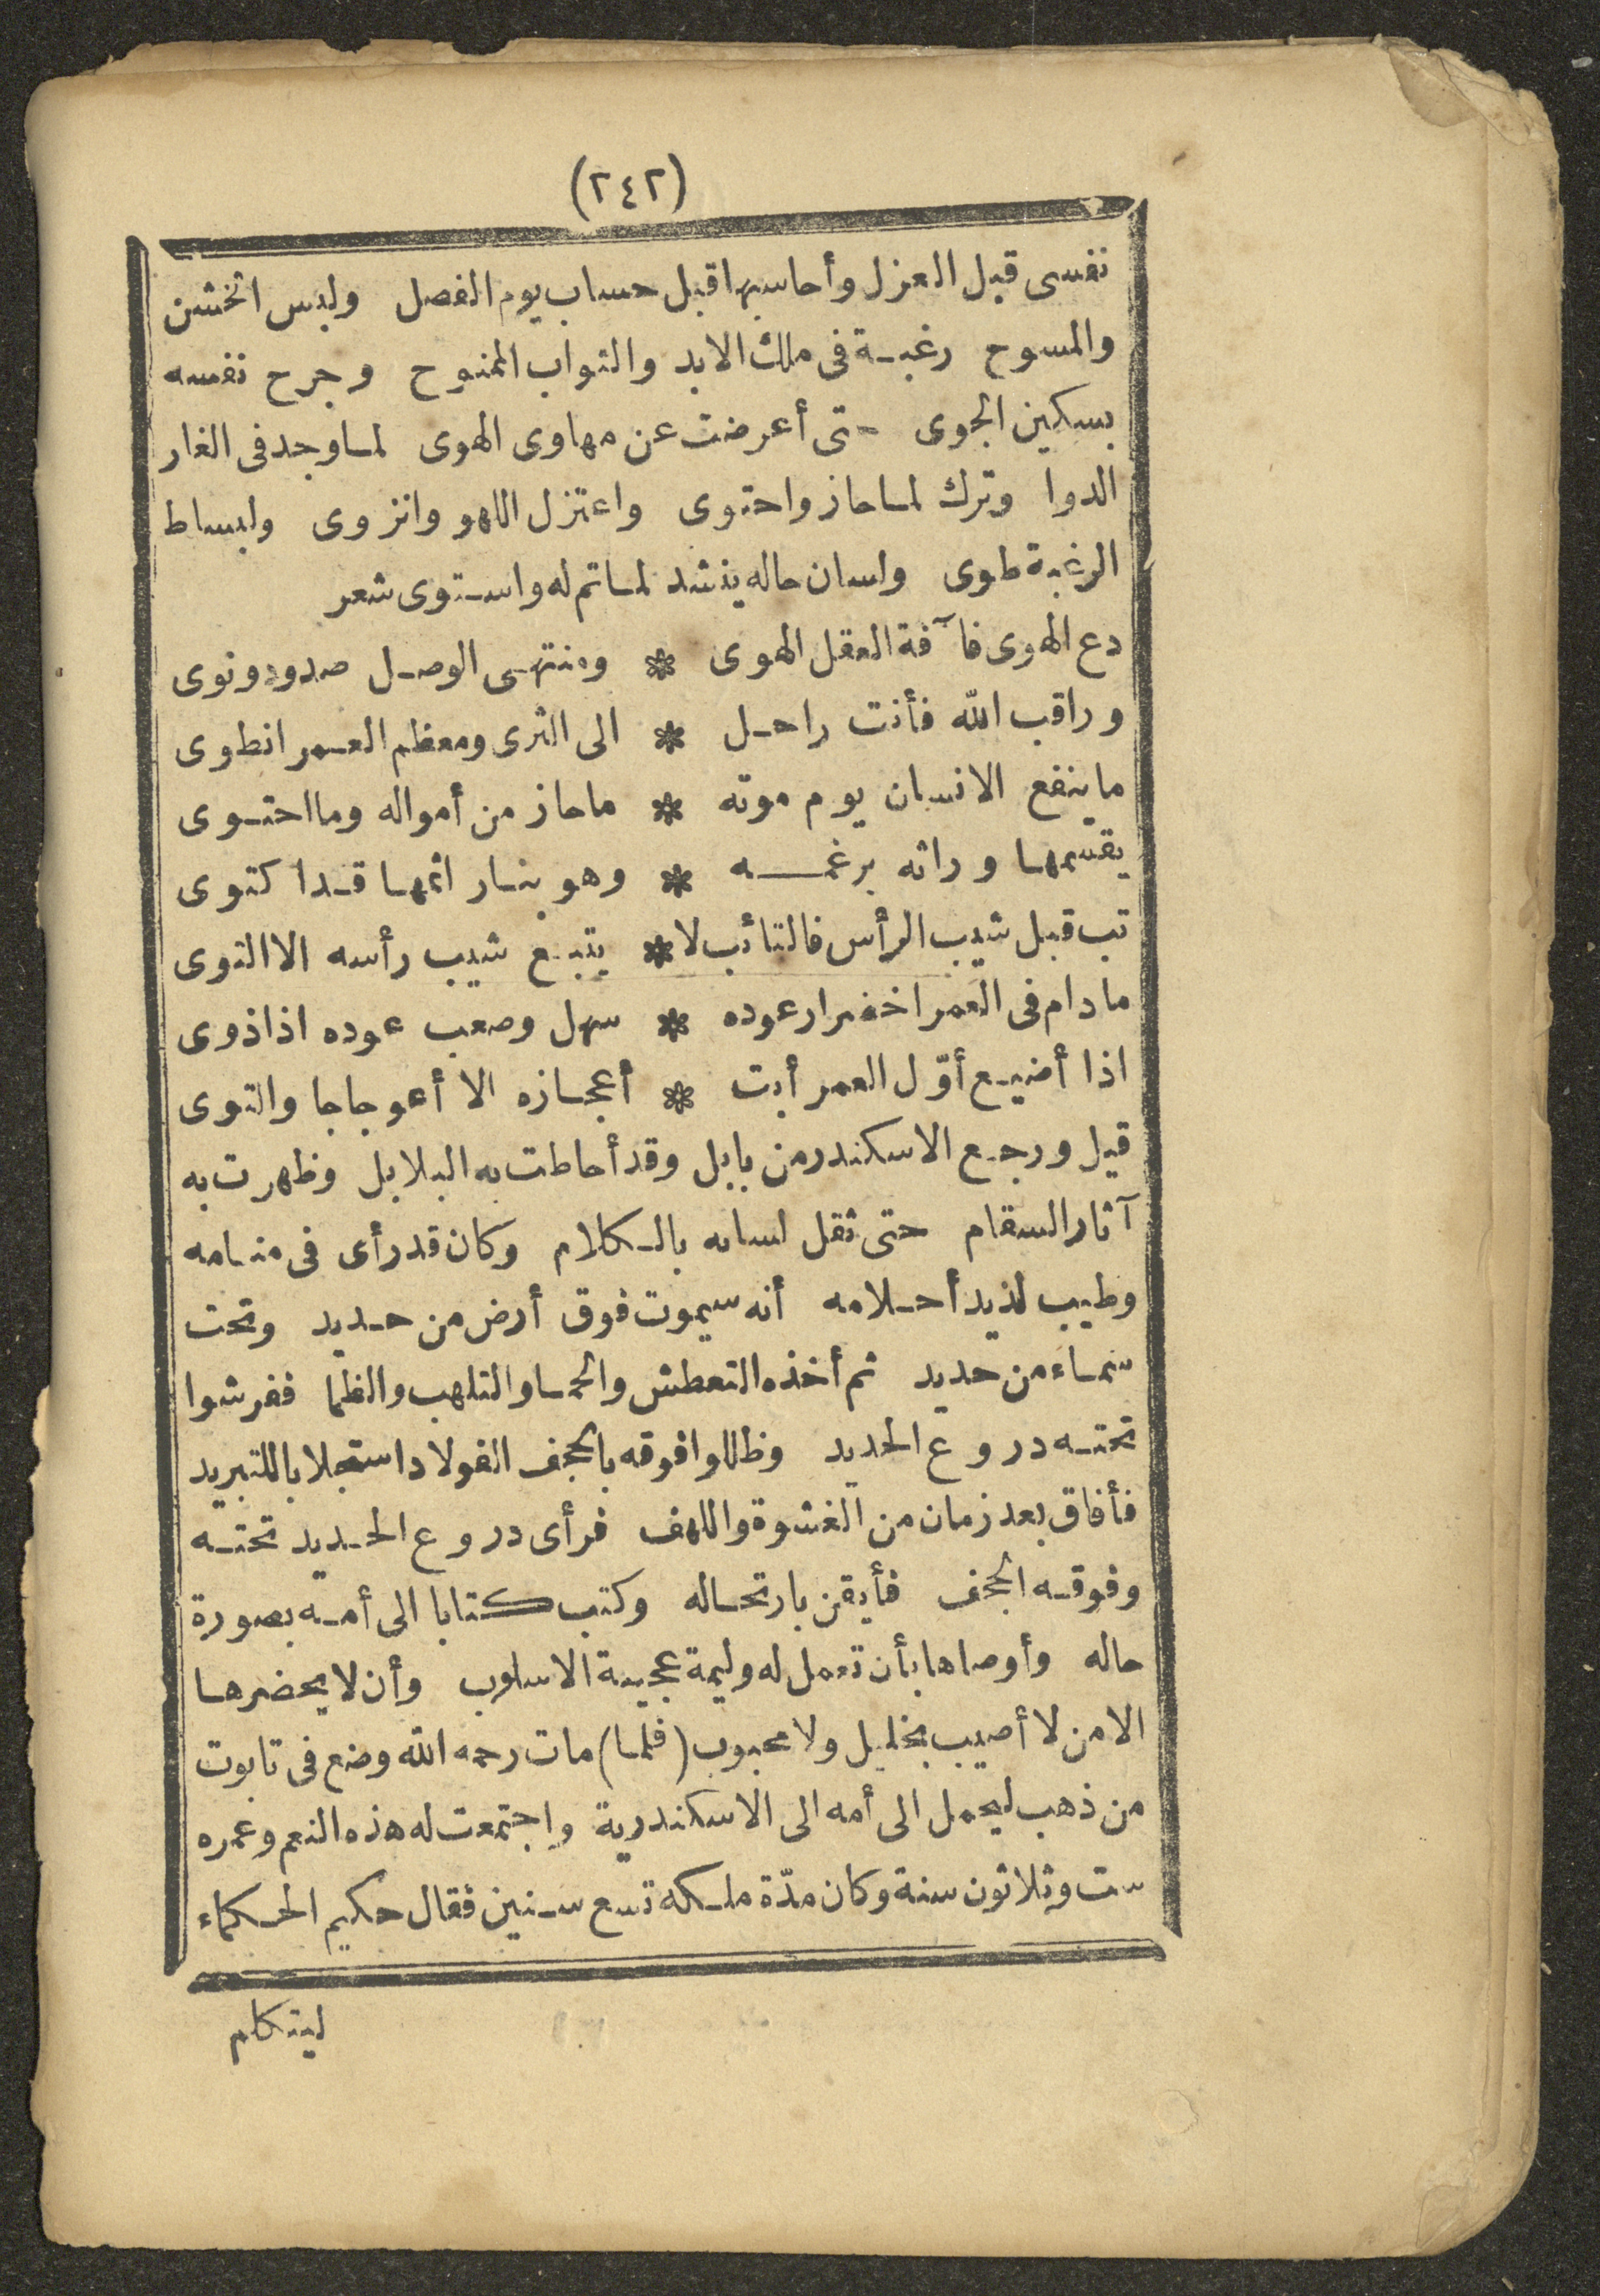 (٢٤٢)
نفسى قبل العزل وأحاسبها قبل حساب يوم الفصل ولبس الخشن
والمسوح رغبة فى ملك الابد والثواب الممنوح وجرح نفسه
بسكين الجوى حتى أعرضت عن مهاوى الهوى لما وجد فى الغار
الدوا وترك لما حاز واحتوى واعتزل اللهو وانزوى ولبساط
الرغبة طوى ولسان حاله ينشد لما تم له واستوى شعر
دع الهوى فآفة العقل الهوى * ومنتهى الوصل صدود ونوى
وراقب الله فأنت راحل * الى الثرى ومعظم العمر انطوى
ما ينفع الانسان يوم موته * ما حاز من أمواله وما احتوى
يقسمها وراثه برغمه * وهو بنار اثمها قد اكتوى
تب قبل شيب الرأس فالتائب لا * يتبع شيب رأسه الا التوى
ما دام فى العمر اخضرار عوده * سهل وصعب عوده اذا ذوى
اذا أضيع أوّل العمر أبت * أعجازه الا أعوجاجا والتوى
قيل ورجع الاسكندر من بابل وقد أحاطت به البلابل وظهرت به
آثار السقام حتى ثقل لسانه بالكلام وكان قد رأى فى منامه
وطيب لذيذ أحلامه أنه سيموت فوق أرض من حديد وتحت
سماء من حديد ثم أخذه التعطش والحما والتلهب والظما ففرشوا
تحته دروع الحديد وظللوا فوقه بالحجف الفولاد استجلابا للتبريد
فأفاق بعد زمان من الغشوة واللهف فرأى دروع الحديد تحته
وفوقه الحجف فأيقن بارتحاله وكتب كتابا الى أمه بصورة
حاله وأوصاها بأن تعمل له وليمة عجيبة الاسلوب وأن لا يحضرها
الا من لا أصيب بخليل ولا محبوب (فلما) مات رحمه الله وضع فى تابوت
من ذهب ليحمل الى أمه الى الاسكندرية واجتمعت له هذه النعم وعمره
ست وثلاثون سنة وكان مدّة ملكه تسع سنين فقال حكيم الحكماء
ليتكلم